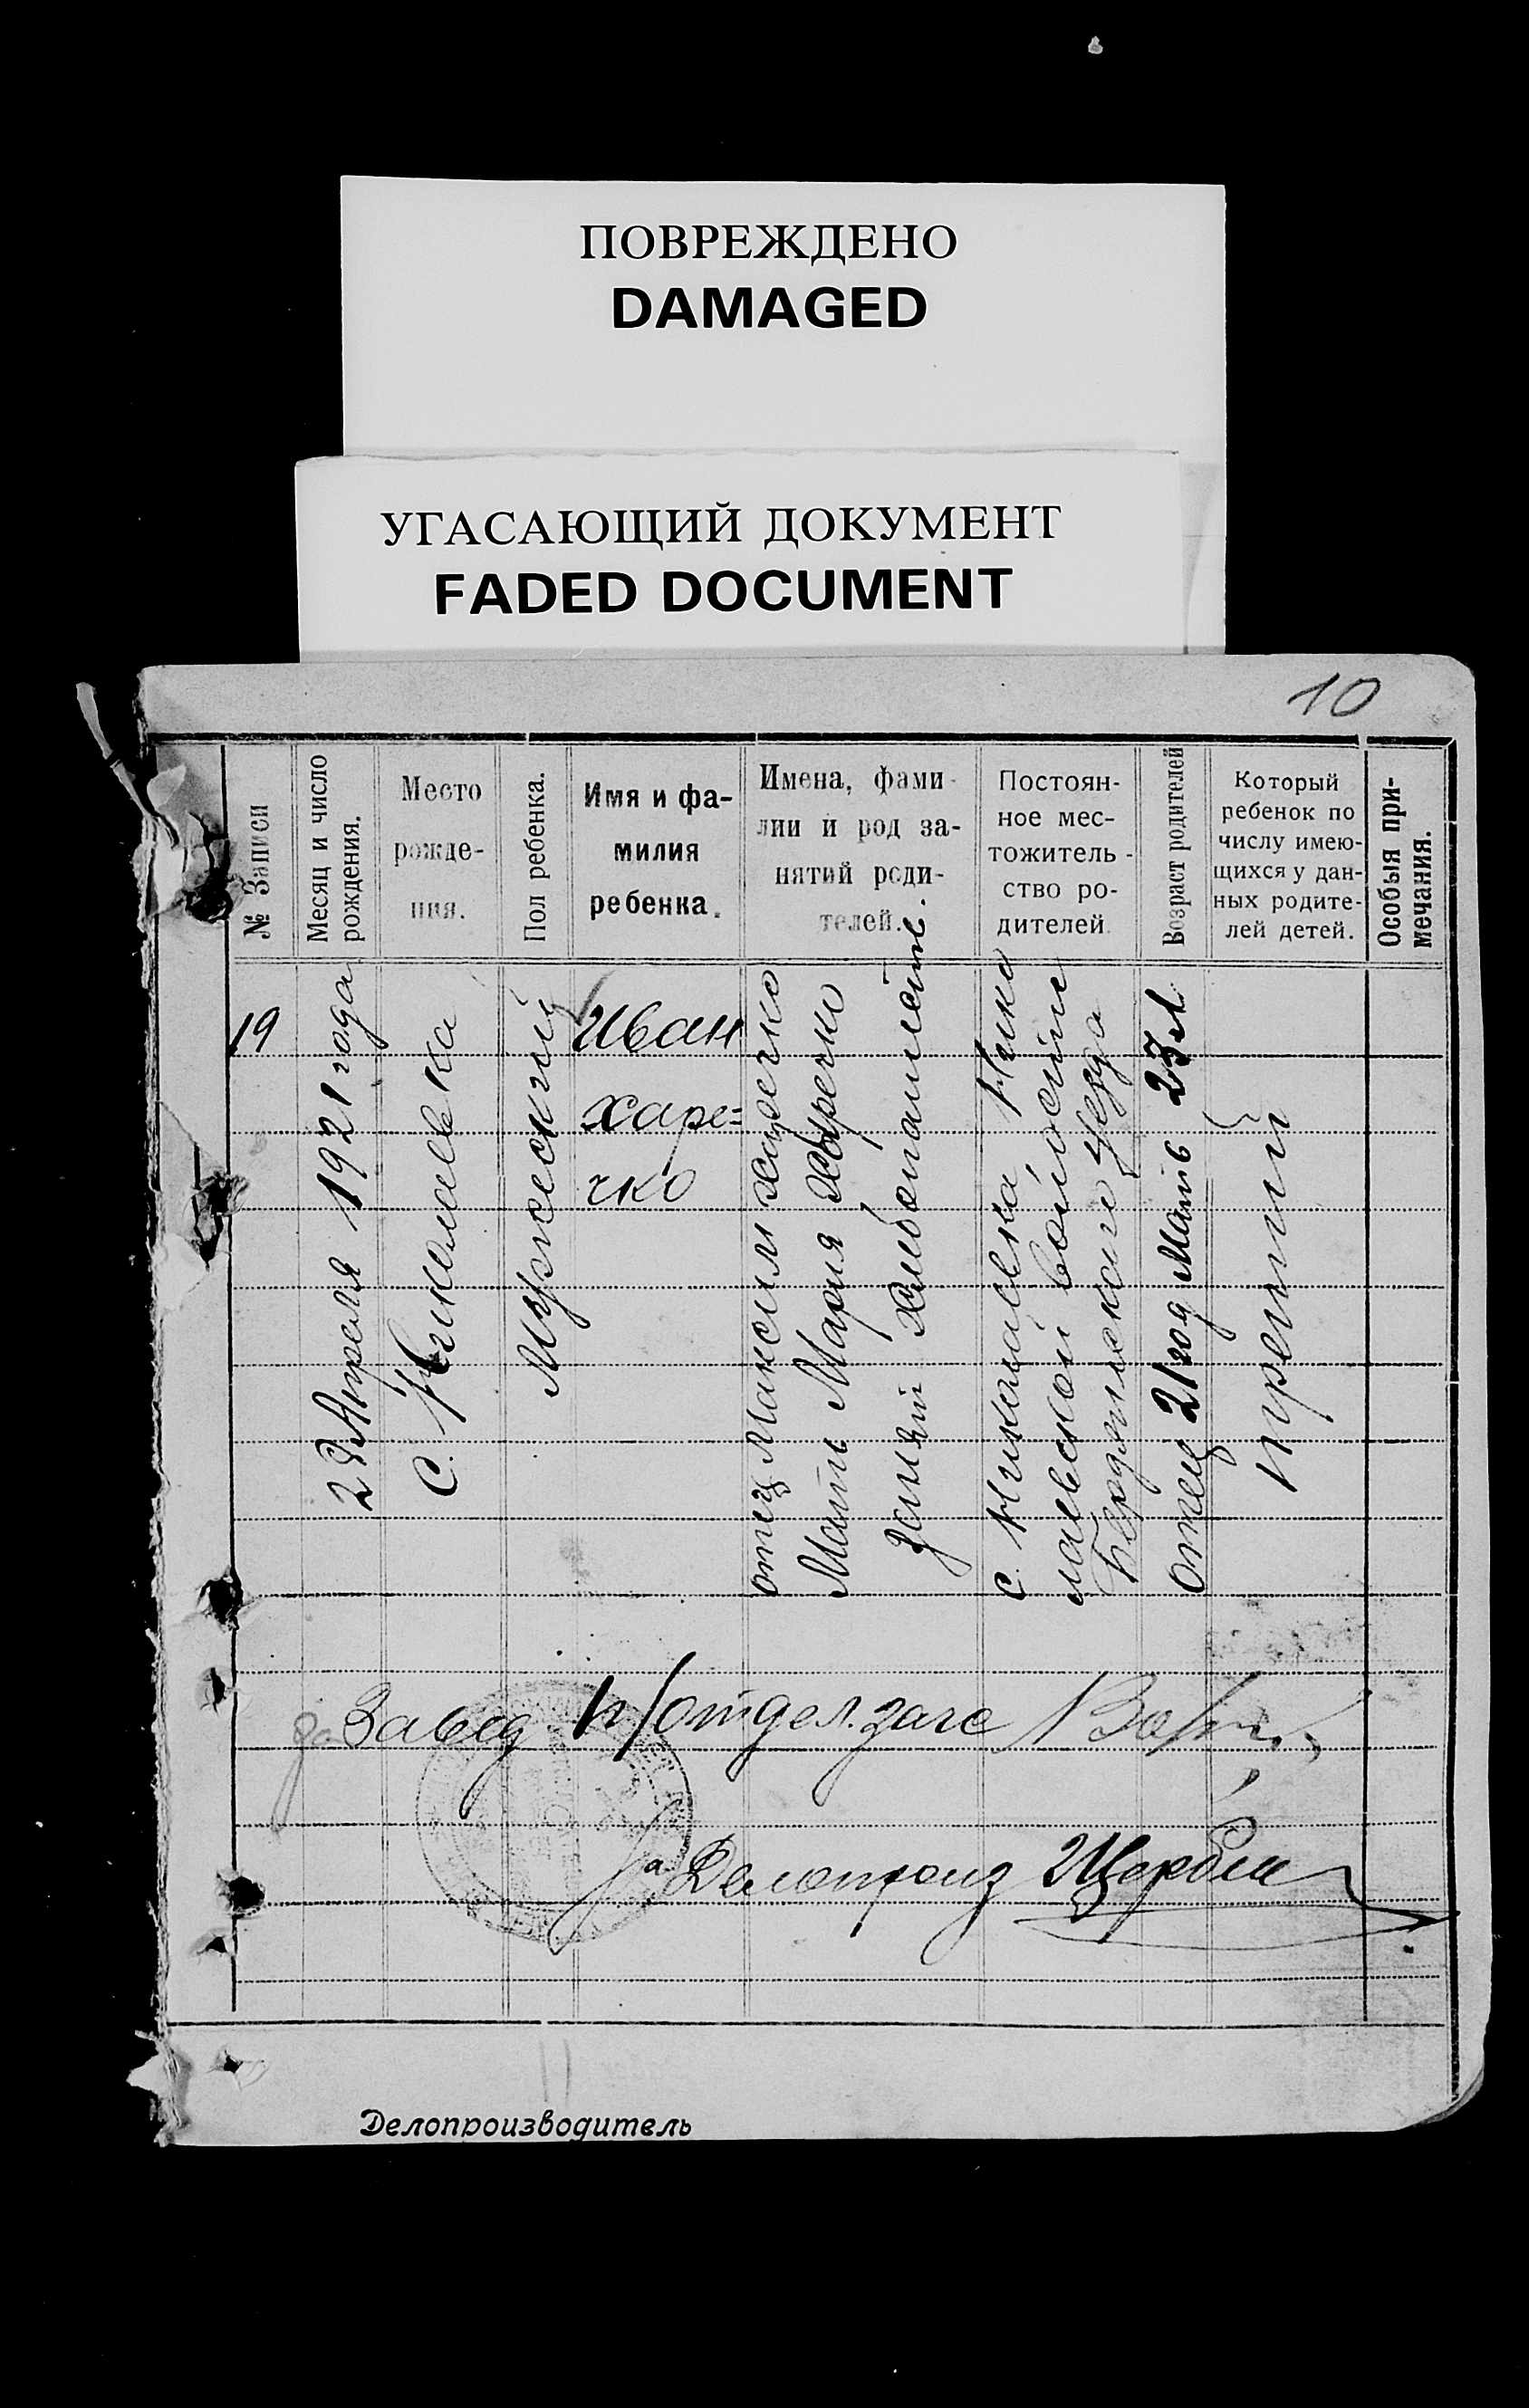 ПОВРЕЖДЕНО
DAMAGED
УГАСАЮЩИЙ ДОКУМЕНТ
FADED DOCUMENT
10
№ Записи
Месяц и число
рождения.
Место
рожде-
ния.
Пол ребенка.
Имя и фа-
милия
ребенка.
Имена, фами-
лии и род за-
нятий роди-
телей.
Постоян-
ное мес-
тожитель-
ство ро-
дителей
Возраст родителей
Который
ребенок по
числу имею-
щихся у дан-
ных родите-
лей детей.
Особыя при-
мечания.
19
Апреля 1921 года
с. Николаевка
Мужеский
Иван
Харе=
чко
отец Максим Харечко
Мать Мария Харечко
занят. хлебопашеств.
с. Николаевка Нико
лаевской волости
Бердянскаго уезда
Отец 21 год Мать 23 л.
третий
за Завед п/отдел. загс
за Делопроиз Щербин
Делопроизводитель